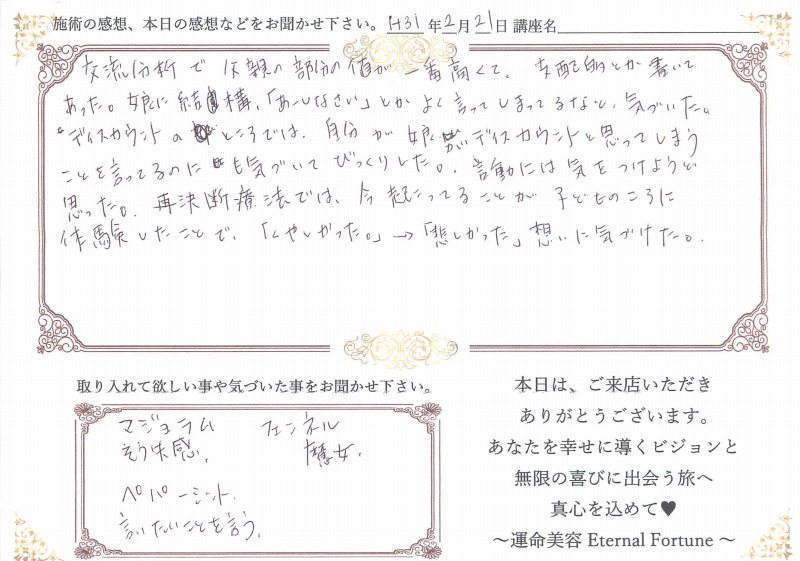 施術の感想、本日の感想などをお聞かせ下さい。H31年2月21日 講座名
交流分析で父親の部分の値が一番高くて、支配的とか書いて
あった。娘に結構、「あーしなさい」とかよく言ってしまってるなと、気づいた。
ディスカウントのところでは、自分が娘がディスカウントと思ってしまう
ことを言ってるのにも気づいてびっくりした。言動には気をつけようと
思った。再決断療法では、今起こってることが子どものころに
体験したことで、「くやしかった。」→「悲しかった」想いに気づけた。
取り入れて欲しい事や気づいた事をお聞かせ下さい。
マジョラム フェンネル
感、 魔女、
ペパーミント、
言いたいことを言う。
本日は、ご来店いただき
ありがとうございます。
あなたを幸せに導くビジョンと
無限の喜びに出会う旅へ
真心を込めて♥
～運命美容 Eternal Fortune ～